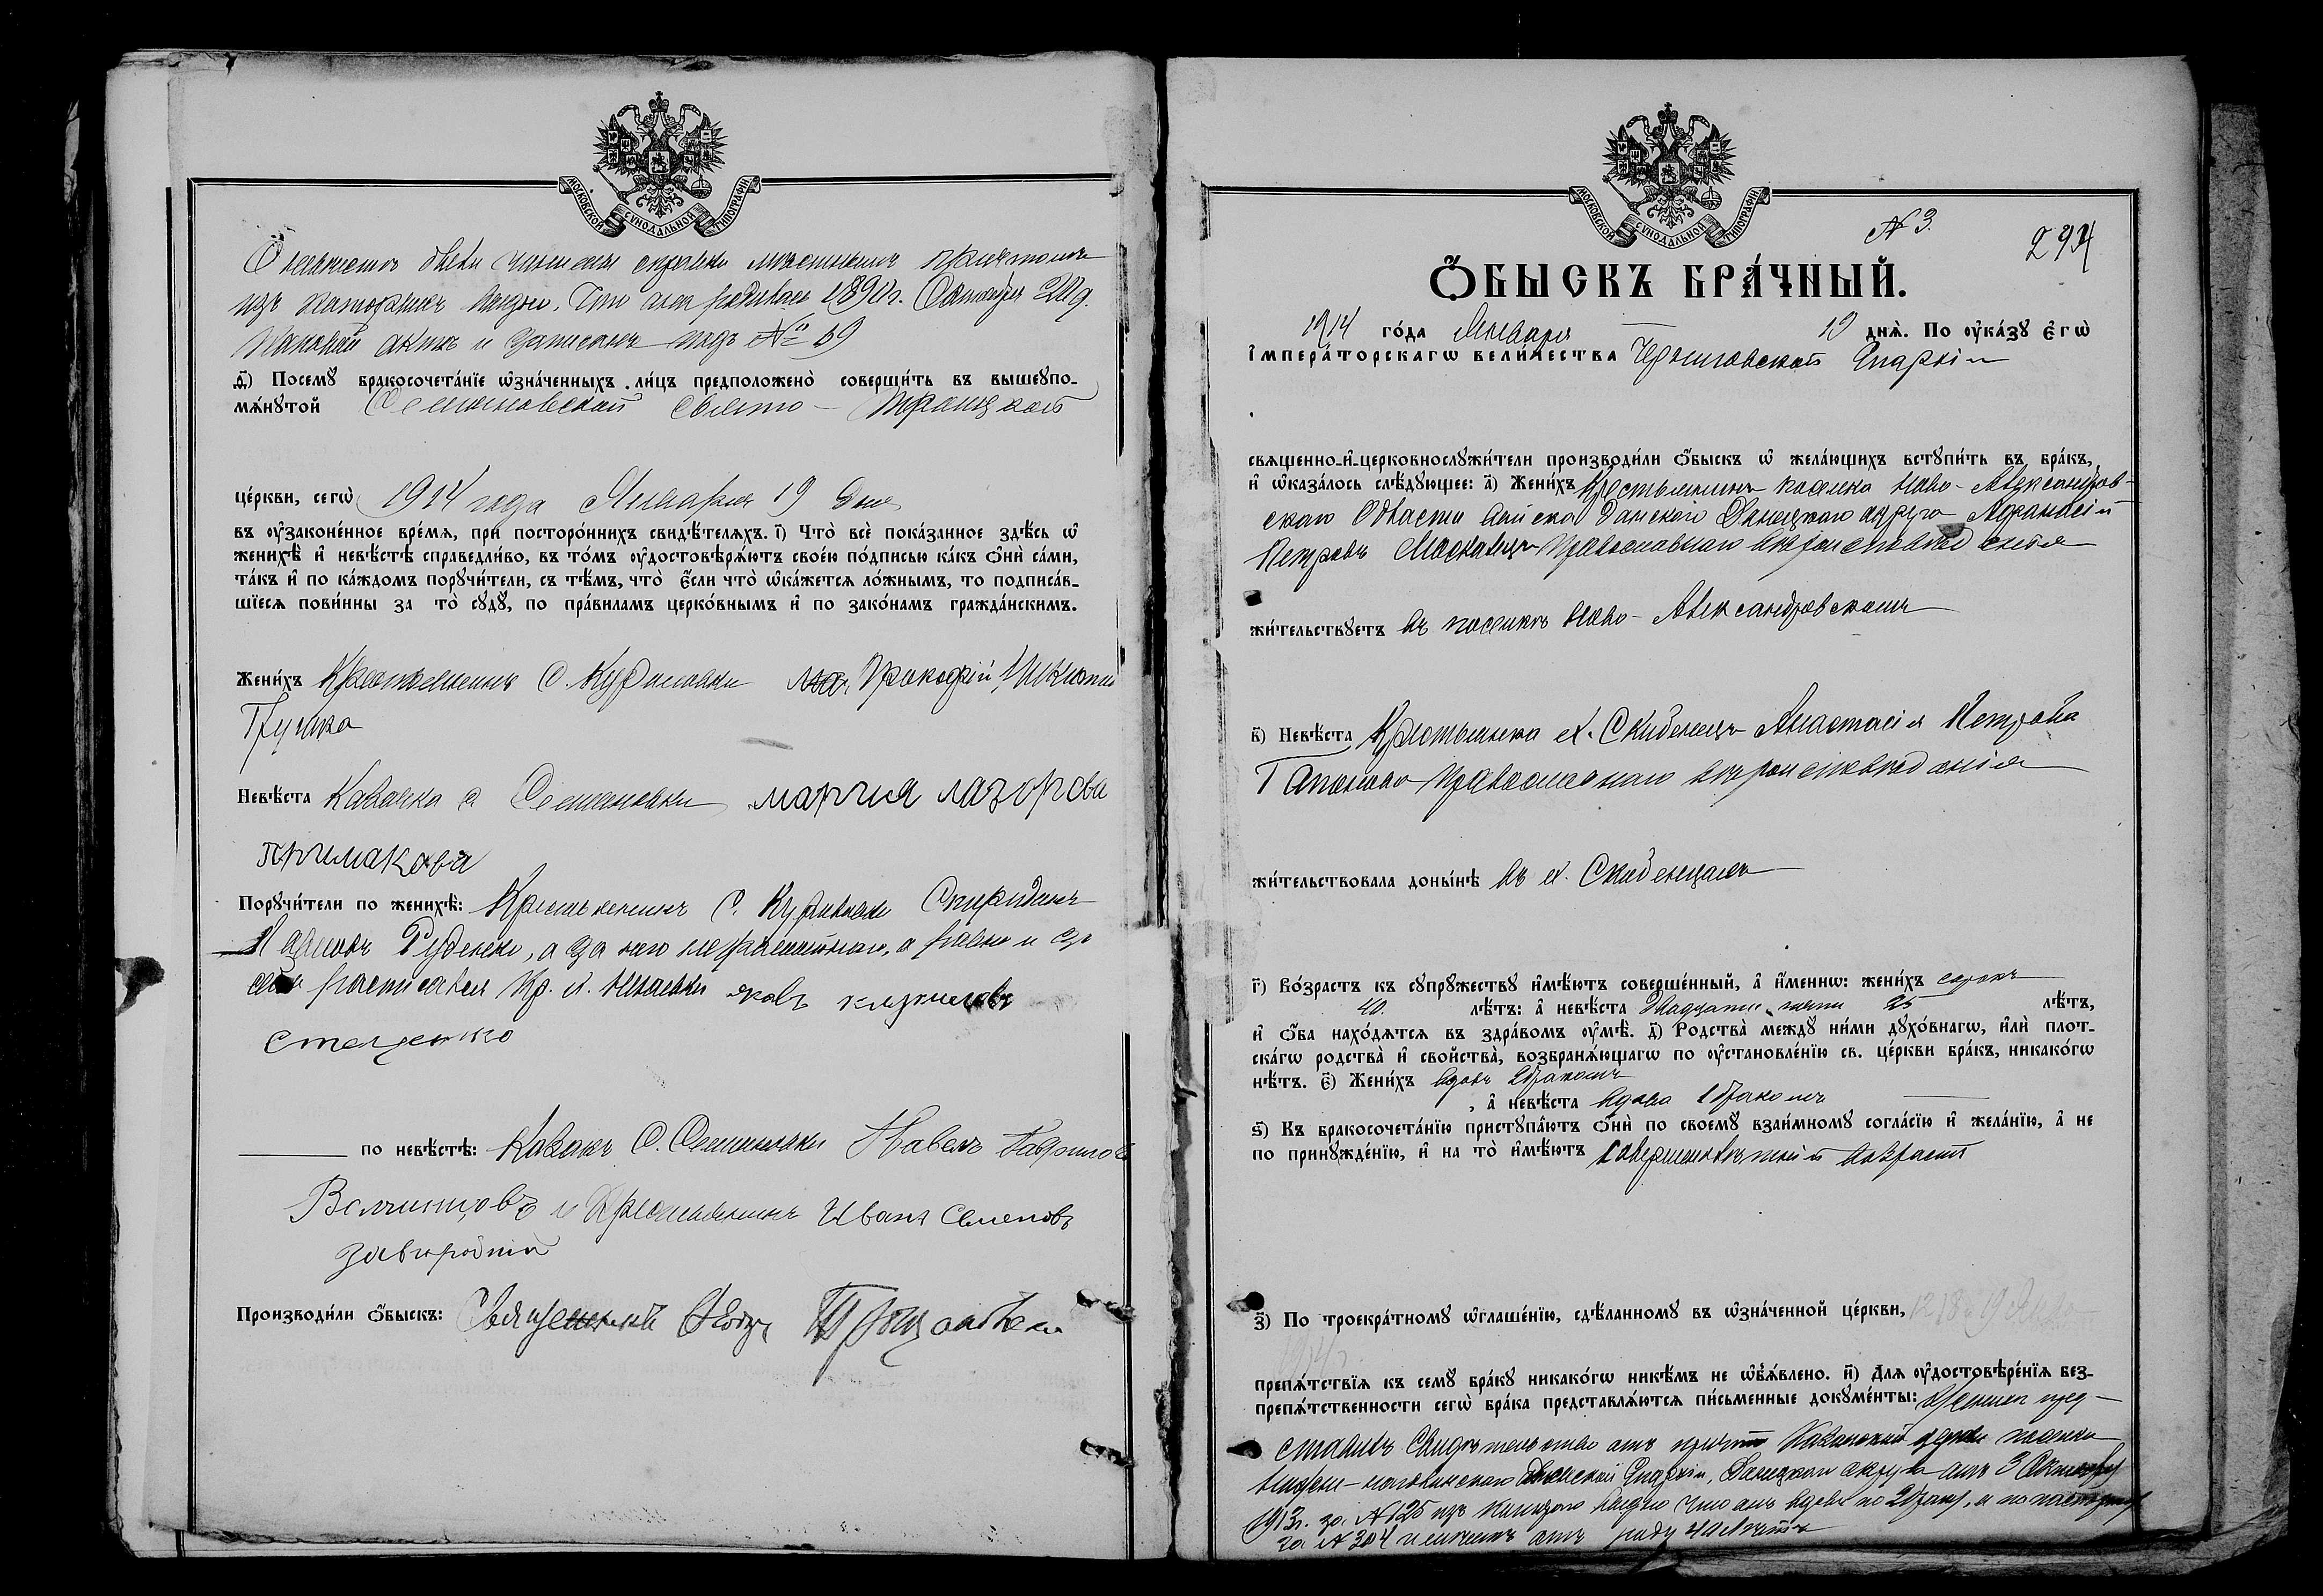 МОСКОВСКОЙ СУНОДАЛЬНОЙ ТИПОГРАФІИ
изъ которыхъ видно, что она родилась 1890 г. Октября
актъ и записанъ подъ № 69
д҃і) Посемꙋ̀ бракосочета́нїе ѡ҆зна́ченныхъ ли́цъ предположено̀ соверши́ть въ вышеꙋпо-
мѧ́нꙋтой Семеновской Свято-Троицкой
це́ркви, сегѡ̀ 1914 года Января 19 дня
въ оу҆зако́ненное вре́мѧ, при посторо́ннихъ свидѣ́телѧхъ. і҃) Что̀ всѐ пока́занное здѣ́сь ѡ҆
женихѣ̀ и҆ невѣ́стѣ справедли́во, въ то́мъ оу҆достовѣрѧ́ютъ свое́ю по́дписью ка́къ ѻ҆нѝ са́ми,
та́къ и҆ по ка́ждомъ порꙋчи́тели, съ тѣ́мъ, что̀ є҆́сли что̀ ѡ҆ка́жется ло́жнымъ, то подписа́в-
шїесѧ пови́нны за то̀ сꙋдꙋ̀, по пра́виламъ церко́внымъ и҆ по зако́намъ гражда́нскимъ.
Жени́хъ Крестьянинъ С. Прокофій
Грушка
Невѣ́ста Казачка с Семеновки марчия лазорєва
примакова
Порꙋчи́тели по женихѣ̀: Крестьянинъ С. Спиридонъ
Руденко, а за него неграмотнаго, а равно и за
себя росписался Кр. яковъ
Стеценко
по невѣ́стѣ: Казакъ С. Семеновки Павелъ Гаврилов
и Крестьянинъ Иванъ Семеновъ
завгородній
Производи́ли ѻ҆́быскъ: Священникъ Ѳеодръ
№ 3.
294
МОСКОВСКОЙ СУНОДАЛЬНОЙ ТИПОГРАФІИ
Ѻ҆́БЫСКЪ БРА́ЧНЫЙ.
1914 го́да Января 19 днѧ̀. По оу҆ка́зꙋ Є҆гѡ̀
І҆мпера́торскагѡ вели́чества Черниговской Епархіи
свѧще́нно-и҆-церковнослꙋжи́тели производи́ли ѻ҆́быскъ ѡ҆ жела́ющихъ встꙋпи́ть въ бра́къ,
и҆ ѡ҆каза́лось слѣ́дꙋющее: а҃) Жени́хъ Крестьянинъ поселка Ново-Александров-
скаго Области Войска Донского Донецкаго округа Афанасій
Петровъ Москалецъ Православнаго вѣроисповѣданія
жи́тельствꙋетъ въ поселкѣ Ново-Александровскомъ
в҃) Невѣ́ста Крестьянка х. Скибенецъ Анастасія Петрова
Гапонова Православнаго вѣроисповѣданія
жи́тельствовала доны́нѣ въ х. Скибенцахъ
г҃) Во́зрастъ къ сꙋпрꙋ́жествꙋ и҆мѣ́ютъ соверше́нный, а҆ и҆́меннѡ: жени́хъ сорокъ
40. лѣ́тъ: а҆ невѣ́ста двадцати пяти 25 лѣ́тъ,
и҆ ѻ҆́ба нахо́дѧтсѧ въ здра́вомъ оу҆мѣ̀. д҃) Родства̀ междꙋ̀ ни́ми дꙋхо́внагѡ, и҆лѝ плот-
ска́гѡ родства̀ и҆ свойства̀, возбранѧ́ющагѡ по оу҆становле́нїю св. це́ркви бра́къ, никако́гѡ
нѣ́тъ. є҃) Жени́хъ вдовъ 2 бракомъ
, а҆ невѣ́ста вдова 1 бракомъ
ѕ҃) Къ бракосочета́нїю пристꙋпа́ютъ ѻ҆нѝ по своемꙋ̀ взаи́мномꙋ согла́сїю и҆ жела́нїю, а҆ не
по принꙋжде́нїю, и҆ на то̀ и҆мѣ́ютъ возрастъ
з҃) По троекра́тномꙋ ѡ҆глаше́нїю, сдѣ́ланномꙋ въ ѡ҆зна́ченной це́ркви,
1914 г.
препѧ́тствїѧ къ семꙋ̀ бра́кꙋ никако́гѡ никѣ́мъ не ѡ҆б̾ѧ́влено. и҃) Длѧ оу҆достовѣре́нїѧ без-
препѧ́тственности сегѡ̀ бра́ка представлѧ́ютсѧ пи́сьменные докꙋме́нты: Женихъ пред-
ставилъ Свидѣтельство отъ причта Казанской церкви поселка
Епархіи, Донецкаго округа отъ 3 Октября
1913 г. за № 125 изъ котораго видно что онъ вдовъ по 2 браку, и по паспорту
за № 304 имѣетъ отъ роду 40 лѣтъ